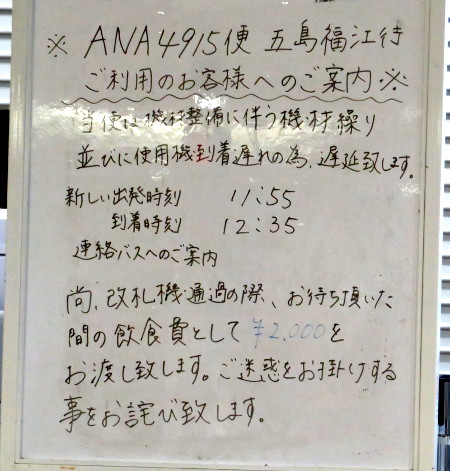 ※ ANA4915便 五島福江行
ご利用のお客様へのご案内※
当便は機材整備に伴う機材繰り
並びに使用機到着遅れの為、遅延致します。
新しい出発時刻 11:55
到着時刻 12:35
連絡バスへのご案内
尚、改札機通過の際、お待ち頂いた
間の飲食費として¥2,000を
お渡し致します。ご迷惑をお掛けする
事をお詫び致します。